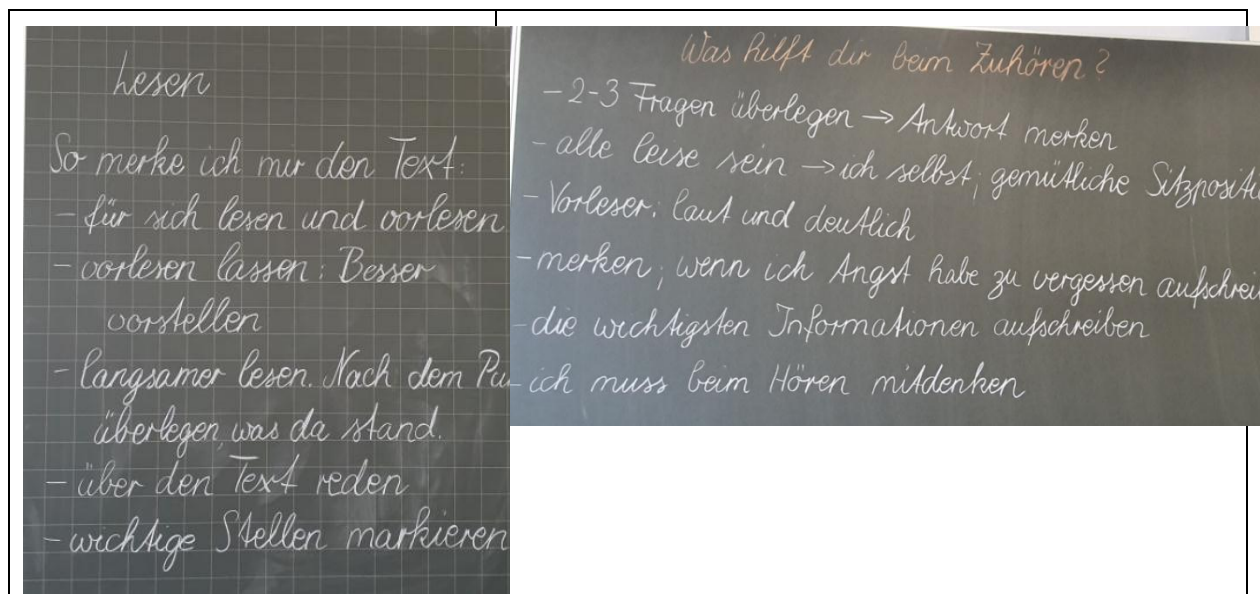 Lesen
So merke ich mir den Text:
- für sich lesen und vorlesen
- vorlesen lassen: Besser
vorstellen
- langsamer lesen. Nach dem Pu
überlegen, was da stand.
- über den Text reden
- wichtige Stellen markieren
Was hilft dir beim Zuhören?
- 2-3 Fragen überlegen → Antwort merken
- alle leise sein → ich selbst; gemütliche Sitzposit
- Vorleser: laut und deutlich
- merken; wenn ich Angst habe zu vergessen aufschrei
- die wichtigsten Informationen aufschreiben
- ich muss beim Hören mitdenken